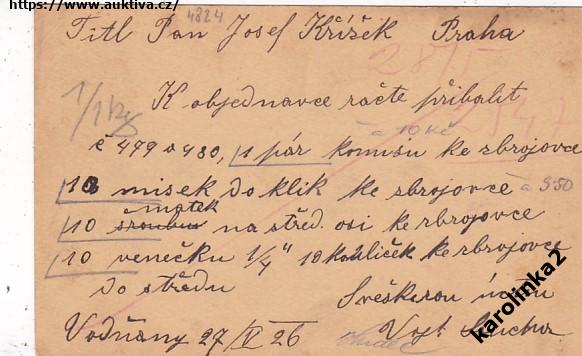 https://www.auktiva.cz/
4824
Titl Pan Josef Křížek Praha
2875
K objednavce račte přibalit
a 10 Kč
č 479 a 480, 1 pár komisu ke zbrojovce
10 misek do klik ke zbrojovce a 5·50
matek
10 šroubu na střed. osi ke zbrojovce
10 venečku 1/4" 18 kouliček ke zbrojovce
do středu
S veškerou úctou
Vodňany 27/V 26 Vojt
karolinka2